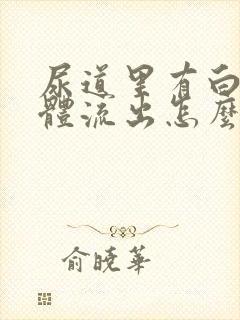 尿道里有白
體流出怎麼
俞曉華